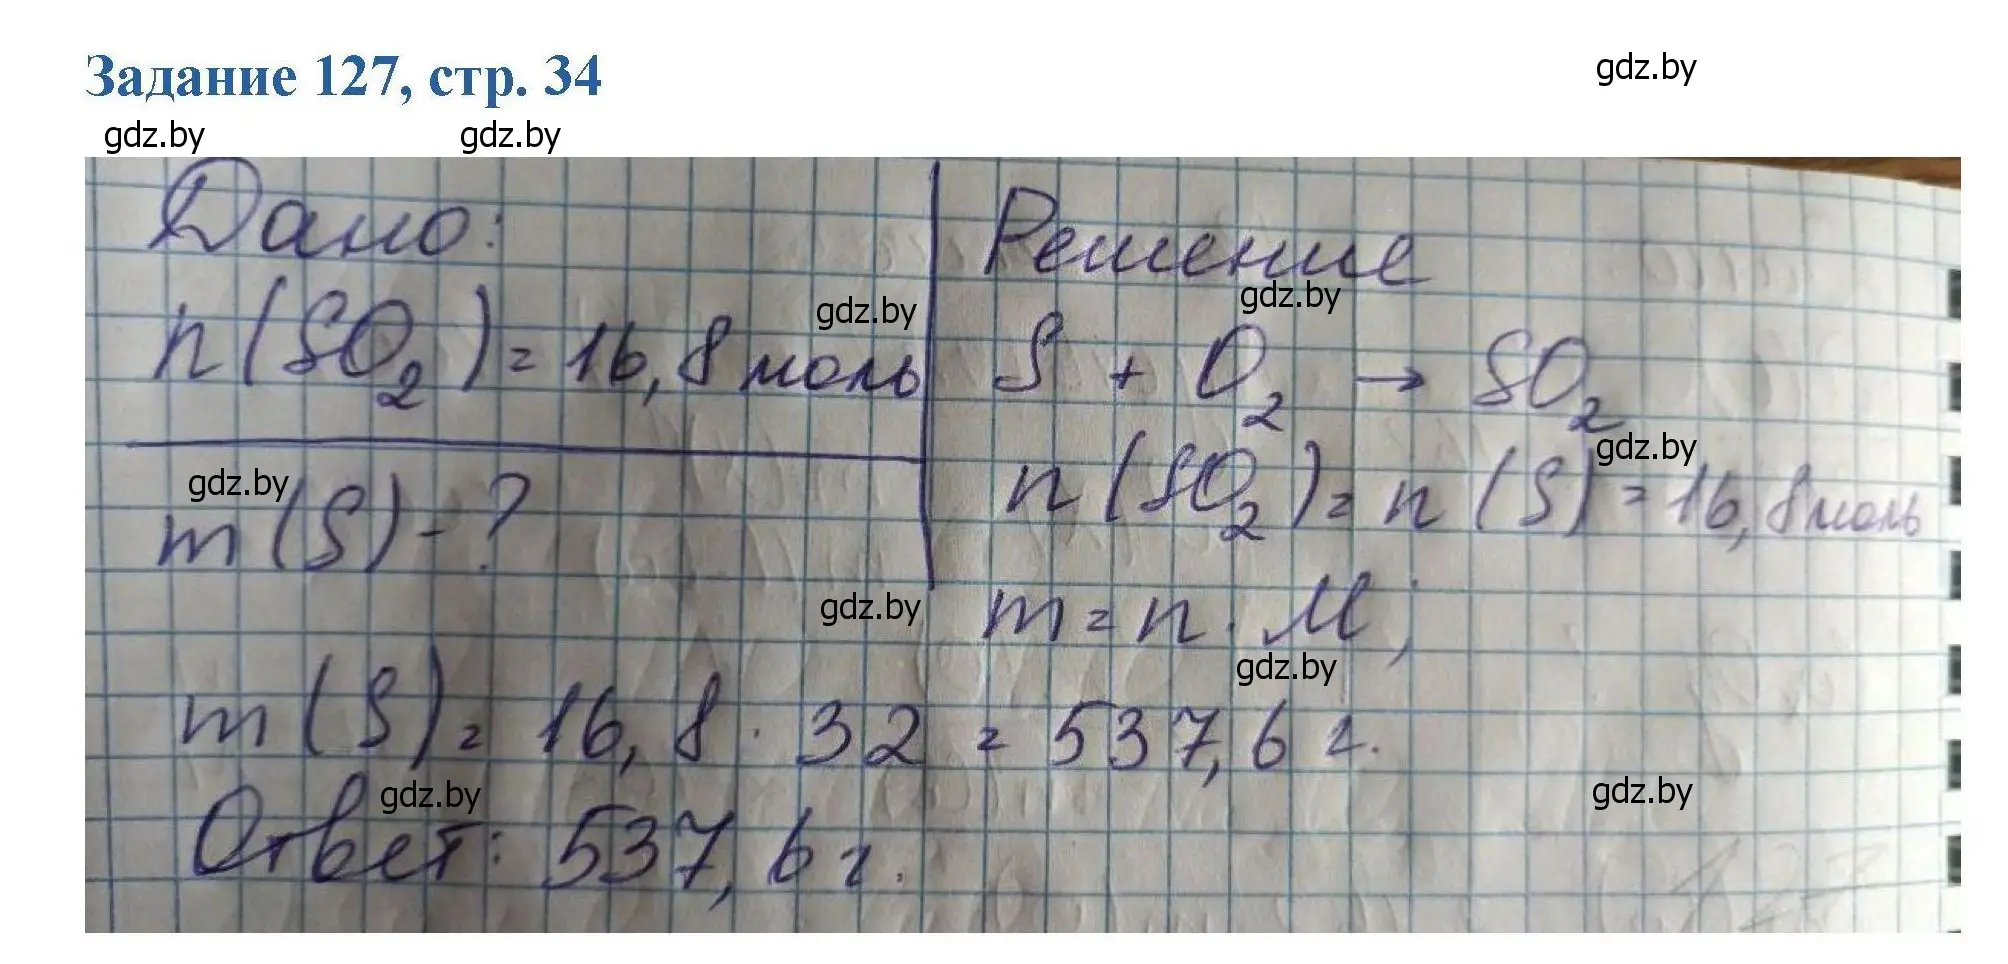 Задание 127, стр. 34
gdz.by
gdz.by gdz.by
Дано:
n(SO₂) = 16,8 моль
gdz.by
gdz.by
m(S) - ?
Решение
gdz.by
S + O₂ → SO₂
gdz.by
n(SO₂) = n(S) = 16,8 моль
gdz.by
m = n · M;
gdz.by
m(S) = 16,8 · 32 = 537,6 г.
gdz.by gdz.by
Ответ: 537,6 г.
127